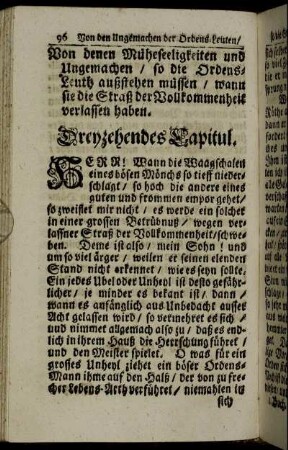 96 Von den Ungemachen der Ordens-Leuten/
Von denen Müheseeligkeiten und
Ungemachen / so die Ordens-
Leuth außstehen müssen / wann
sie die Straß der Vollkommenheit
verlassen haben.
Dreyzehendes Capitul.
HERR! Wann die Waagschalen
eines bösen Mönchs so tieff nieder-
schlagt / so hoch die andere eines
guten und frommen empor gehet/
so zweiflet mir nicht / es werde ein solcher
in einer grossen Betrübnuß / wegen ver-
lassner Straß der Vollkommenheit/ schwe-
ben. Deme ist also / mein Sohn ! und
um so viel ärger / weilen er seinen elenden
Stand nicht erkennet / wie es seyn sollte.
Ein jedes Ubel oder Unheyl ist desto gefähr-
licher / je minder es bekant ist / dann /
wann es anfänglich aus Unbedacht ausser
Acht gelassen wird / so vermehret es sich /
und nimmet allgemach also zu / daß es end-
lich in ihrem Hauß die Herrschung führet /
und den Meister spielet. O was für ein
grosses Unheyl ziehet ein böser Ordens-
Mann ihme auf den Halß / der von zu fre-
cher Lebens-Arth verführet / niemahlen in
sich